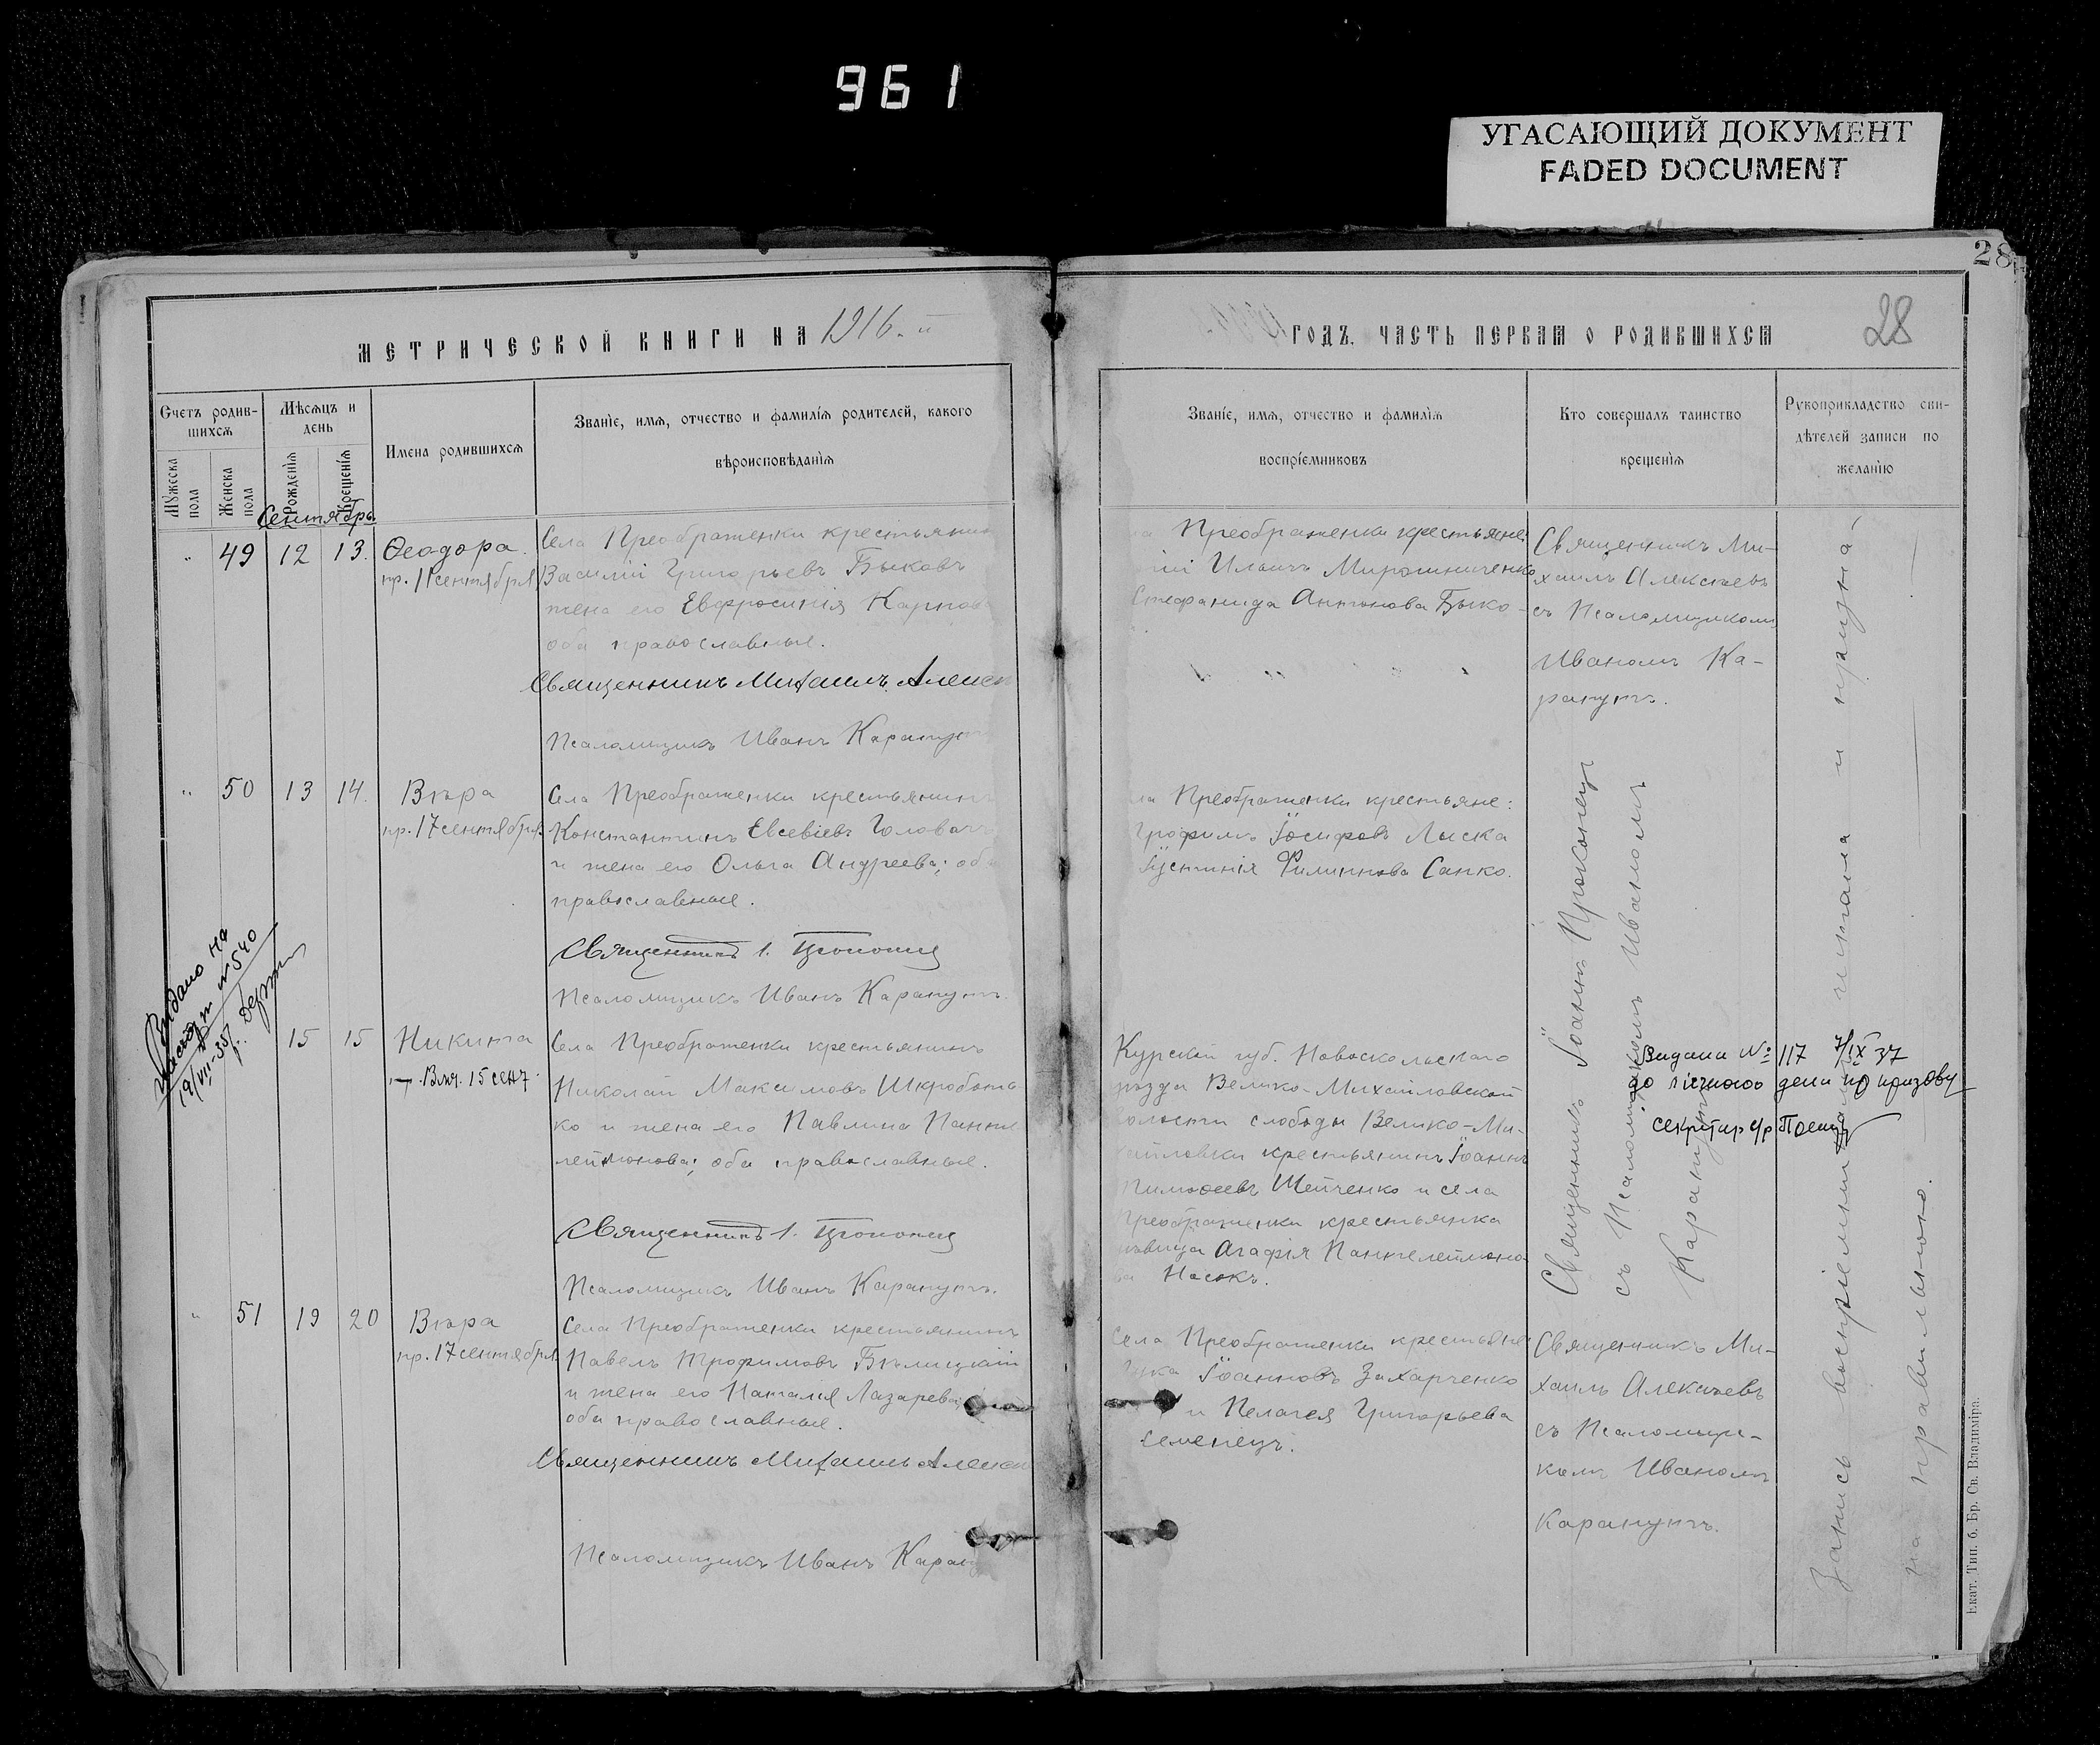 961
УГАСАЮЩИЙ ДОКУМЕНТ
FADED DOCUMENT
28
28
МЕТРИЧЕСКОЙ КНИГИ НА 1916-й
ГОДЪ. ЧАСТЬ ПЕРВАЯ О РОДИВШИХСЯ
Счетъ родив-
шихся
Мужеска пола
Женска пола
Мѣсяцъ и
день
Рожденія
Крещенія
Имена родившихся
Званіе, имя, отчество и фамилія родителей, какого
вѣроисповѣданія
Званіе, имя, отчество и фамилія
воспріемниковъ
Кто совершалъ таинство
крещенія
Рукоприкладство сви-
дѣтелей записи по
желанію
Сентябрь
" 49 12 13. Ѳеодора.
пр. 11 сентября
Села Преображенки крестьянин
Василій Григорьевъ Быковъ
жена его Евфросинія Карпова
оба православные.
Священникъ Михаилъ Алекс
Псаломщикъ Иванъ Карапут
Преображенки крестьяне:
Ильичъ Мирошниченко
Стефанида Антонова Быко-
Священникъ Ми-
хаилъ Алексѣевъ
съ Псаломщикомъ
Иваномъ Ка-
рапутъ.
" 50 13 14. Вѣра
пр. 17 сентября.
Села Преображенки крестьянинъ
Константинъ Евсевіевъ Головач
и жена его Ольга Андреева; оба
православные.
Священникъ І. Прокопец
Псаломщикъ Иванъ Карапутъ
Преображенки крестьяне:
Трофимъ Іосифовъ Лыска
Іустинія Филиппова Сапко.
Священникъ Іоаннъ Прокопец
съ Псаломщикомъ Иваномъ
Карапутъ
Видано на
№ 540
19/VII-35 р.
15 15 Никита
пр. Влч. 15 сент.
Села Преображенки крестьянинъ
Николай Максимовъ Шкробот
ко и жена его Павлина Панте
леймонова; оба православные.
Священникъ І. Прокопец
Псаломщикъ Иванъ Карапутъ.
Курской губ. Новоскольскаго
уѣзда Велико-Михайловской
волости слободы Велико-Ми-
хайловки крестьянинъ Іоаннъ
Тимоѳеевъ Шейченко и села
Преображенки крестьянка
дѣвица Агафія Пантелеймоно-
ва Носокъ.
Видана № 117 7/IX 37
до призову
секретар с/р
" 51 19 20 Вѣра
пр. 17 сентября.
Села Преображенки крестьянинъ
Павелъ Трофимовъ Бѣлицкій
и жена его Наталія Лазарева;
оба православные.
Священникъ Михаилъ Алекс
Псаломщикъ Иванъ Карапу
Села Преображенки крестьяне
Іоанновъ Захарченко
и Пелагея Григорьева
Семенецъ.
Священникъ Ми-
хаилъ Алексѣевъ
съ Псаломщи-
комъ Иваномъ
Карапутъ.
Запись воспріемникамъ читана и признана
на правильною.
Екат. Тип. б. Бр. Св. Владиміра.